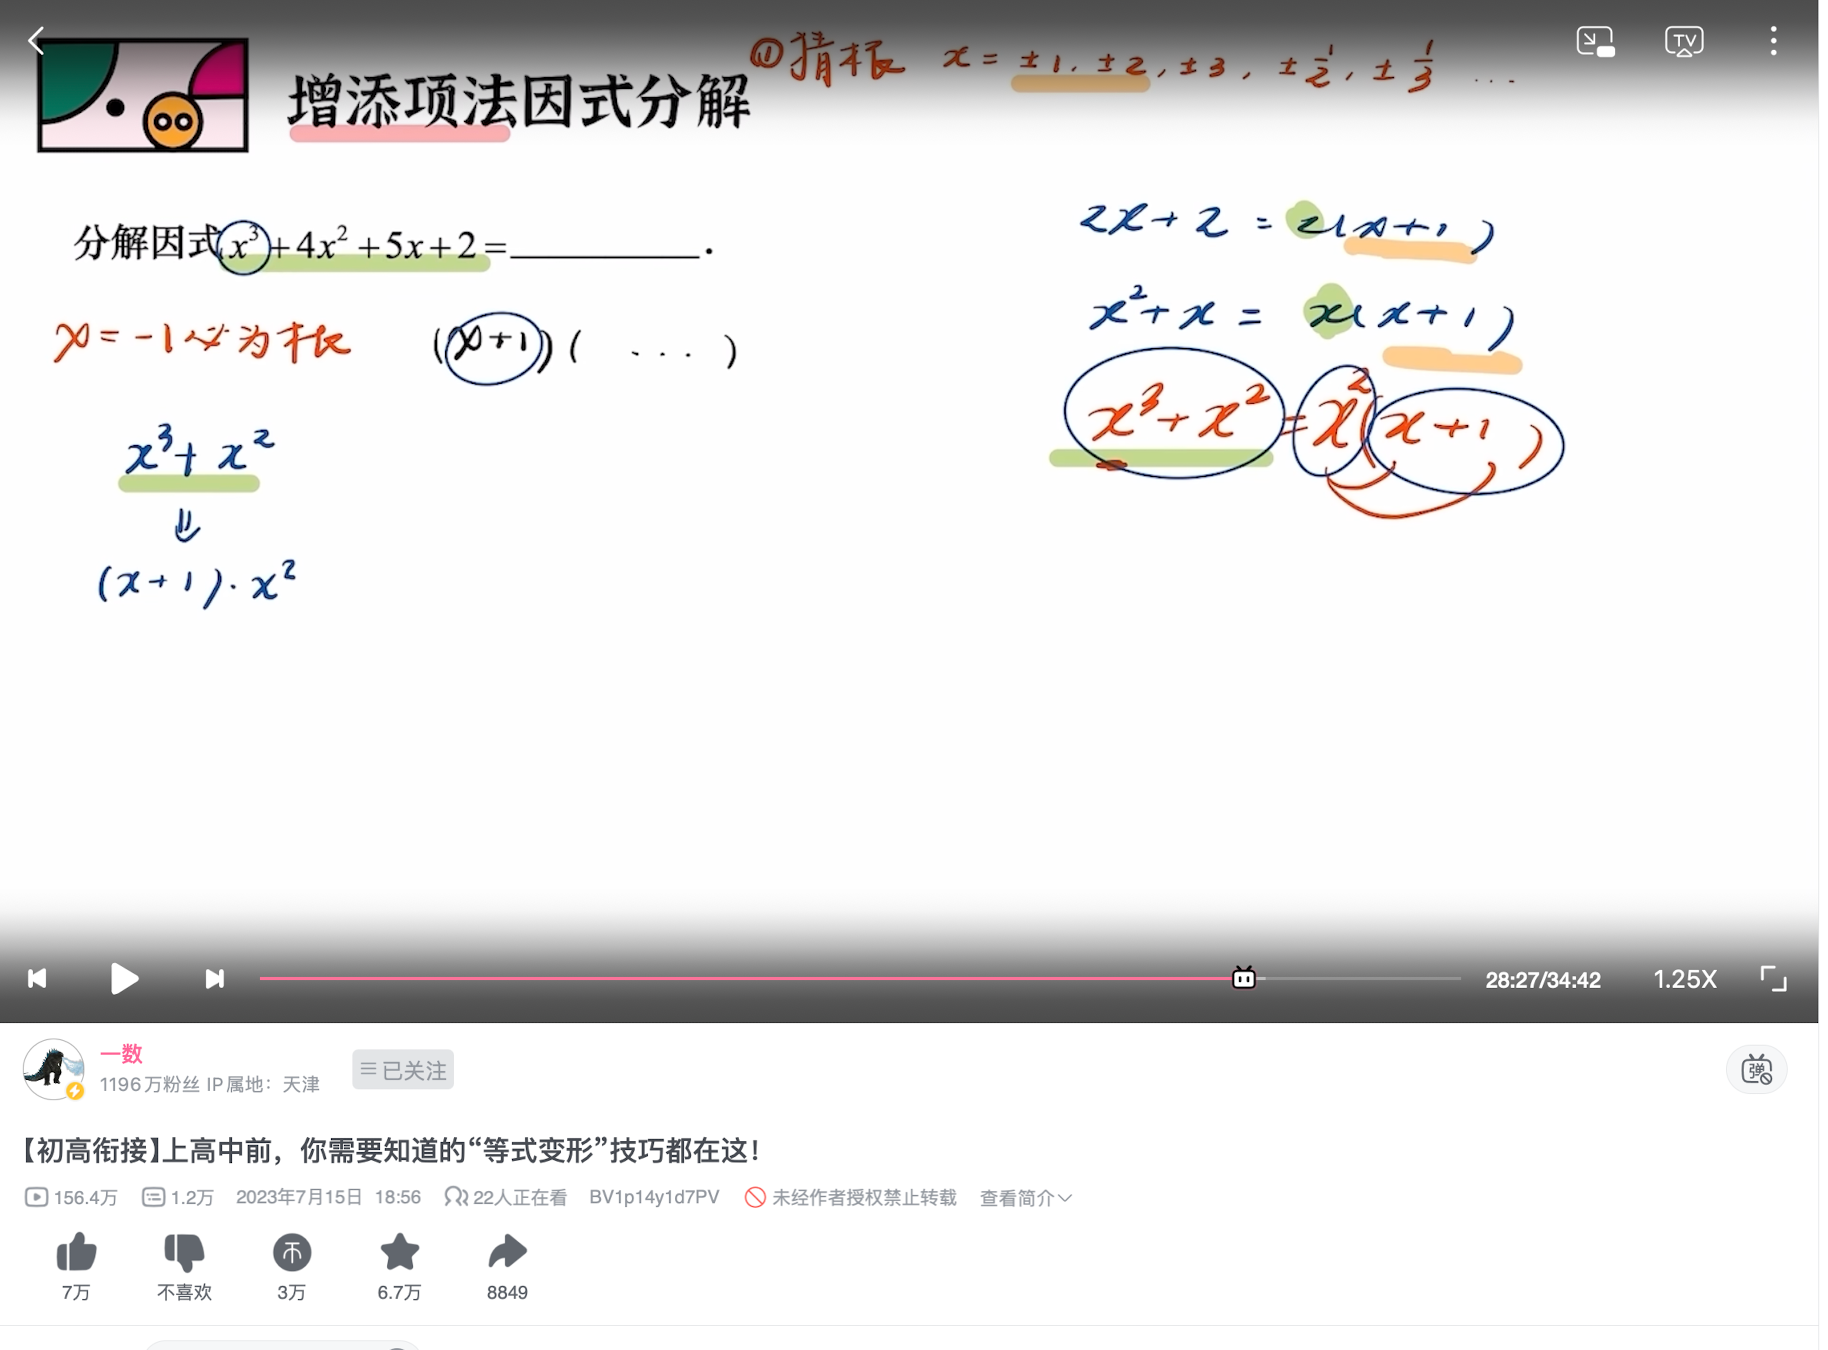 ①猜根 x = ±1, ±2, ±3, ±1/2, ±1/3 ...
TV
增添项法因式分解
分解因式x³+4x²+5x+2=__________.
x = -1 必为根 (x+1)( ... )
x³+x²
⇓
(x+1)·x²
2x+2 = 2(x+1)
x²+x = x(x+1)
x³+x² = x²(x+1)
28:27/34:42 1.25X
一数
1196万粉丝 IP属地：天津
已关注
弹
【初高衔接】上高中前，你需要知道的“等式变形”技巧都在这！
156.4万 1.2万 2023年7月15日 18:56 22人正在看 BV1p14y1d7PV 未经作者授权禁止转载 查看简介
7万 不喜欢 3万 6.7万 8849